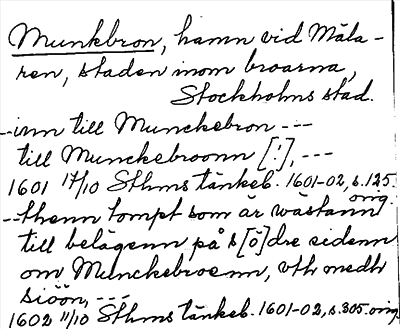 Munkbron, hamn vid Mäla-
ren, staden inom broarna,
Stockholms stad.
--inn till Munckebron ---
till Munckebroonn [!], ---
1601 17/10 Sthms tänkeb. 1601-02, s. 125.
orig.
--thenn tompt som är wästann
till belägenn på s[ö]dre sidenn
om Munckebroenn, vthr medh
siöön, ---
1602 11/10 Sthms tänkeb. 1601-02, s. 305. orig.